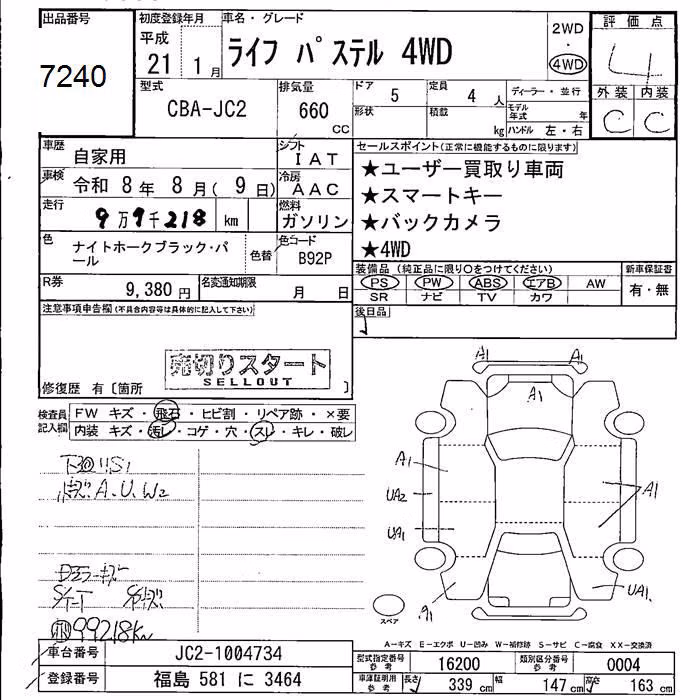 出品番号
7240
初度登録年月
平成
21 1月
車名・グレード
ライフ パステル 4WD
2WD
・
4WD
評価点
4
外装 内装
C C
型式
CBA-JC2
排気量
660
CC
ドア
5
定員
4 人
ディーラー・並行
形状
積載
kg
モデル年式 年
ハンドル 左・右
車歴
自家用
シフト
IAT
車検
令和 8年 8月( 9日)
冷房
AAC
走行
9万9千218 km
燃料
ガソリン
色
ナイトホークブラック・パール
色替
色コード
B92P
R券
9,380円
名変通知期限
月 日
セールスポイント(正常に機能するものに限ります)
★ユーザー買取り車両
★スマートキー
★バックカメラ
★4WD
装備品 (純正品に限り○をつけてください)
PS PW ABS エアB AW
SR ナビ TV カワ
新車保証書
有・無
後日品
注意事項申告欄(不具合内容等は具体的に記入して下さい)
売切りスタート
SELLOUT
修復歴 有〔箇所 〕
検査員記入欄
FW キズ・飛石・ヒビ割・リペア跡・×要
内装 キズ・汚レ・コゲ・穴・スレ・キレ・破レ
A.U.W2
99218km
A1 A1
A1
A1
UA2
A1
UA1
UA1
スペア
A−キズ E−エクボ U−凹み W−補修跡 S−サビ C−腐食 XX−交換済
車台番号
JC2-1004734
登録番号
福島 581 に 3464
型式指定番号
参考
16200
類別区分番号
参考
0004
車庫証明用
参考
長さ 339 cm
幅 147 cm
高さ 163 cm